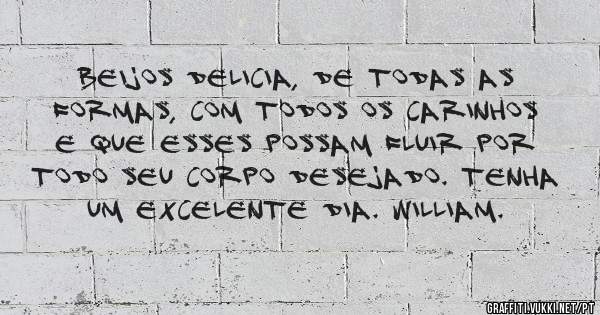 BEIJOS DELICIA, DE TODAS AS
FORMAS, COM TODOS OS CARINHOS
E QUE ESSES POSSAM FLUIR POR
TODO SEU CORPO DESEJADO. TENHA
UM EXCELENTE DIA. WILLIAM.
GRAFFITI.VUKKI.NET/PT